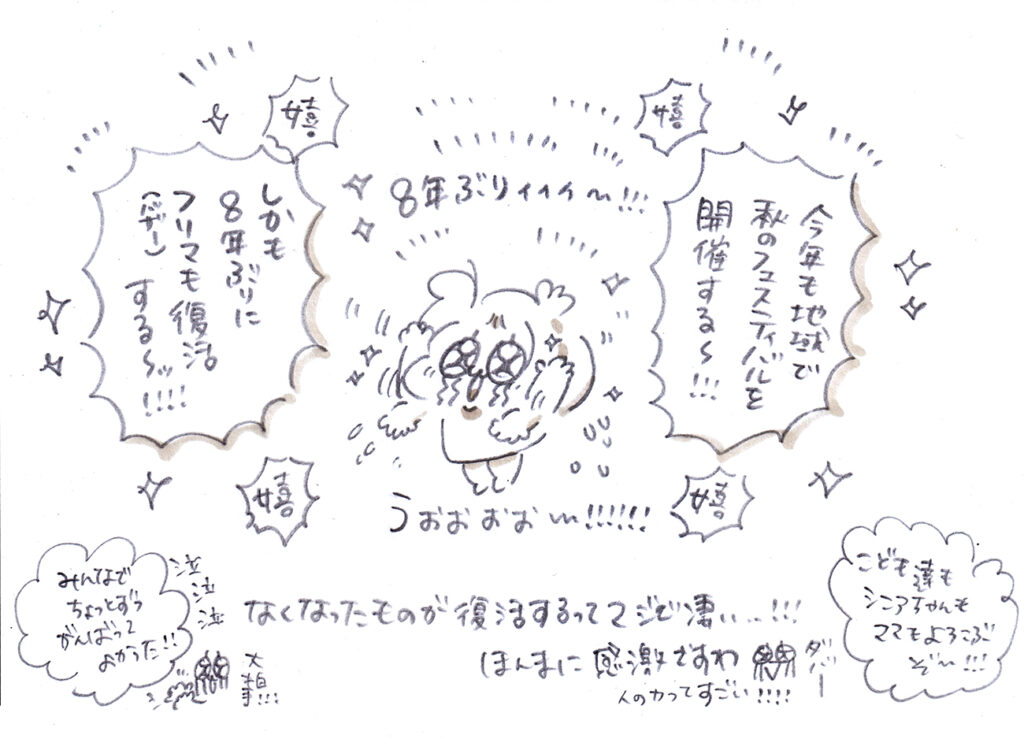 嬉
嬉
8年ぶりィィィ〜!!!
今年も地域で
秋のフェスティバルを
開催する〜!!!
しかも
8年ぶりに
フリマも復活
(バザー)
する〜ッ!!!!
嬉
嬉
うおおおお〜!!!!!!
みんなで
ちょっとずつ
がんばって
よかった!!
泣
泣
泣
なくなったものが復活するってマジで凄い…!!!
ほんまに感激ですわ
ダバー
人の力ってすごい!!!!
大拍手!!!
こども達も
シニアちゃんも
ママもよろこぶ
ぞ〜!!!